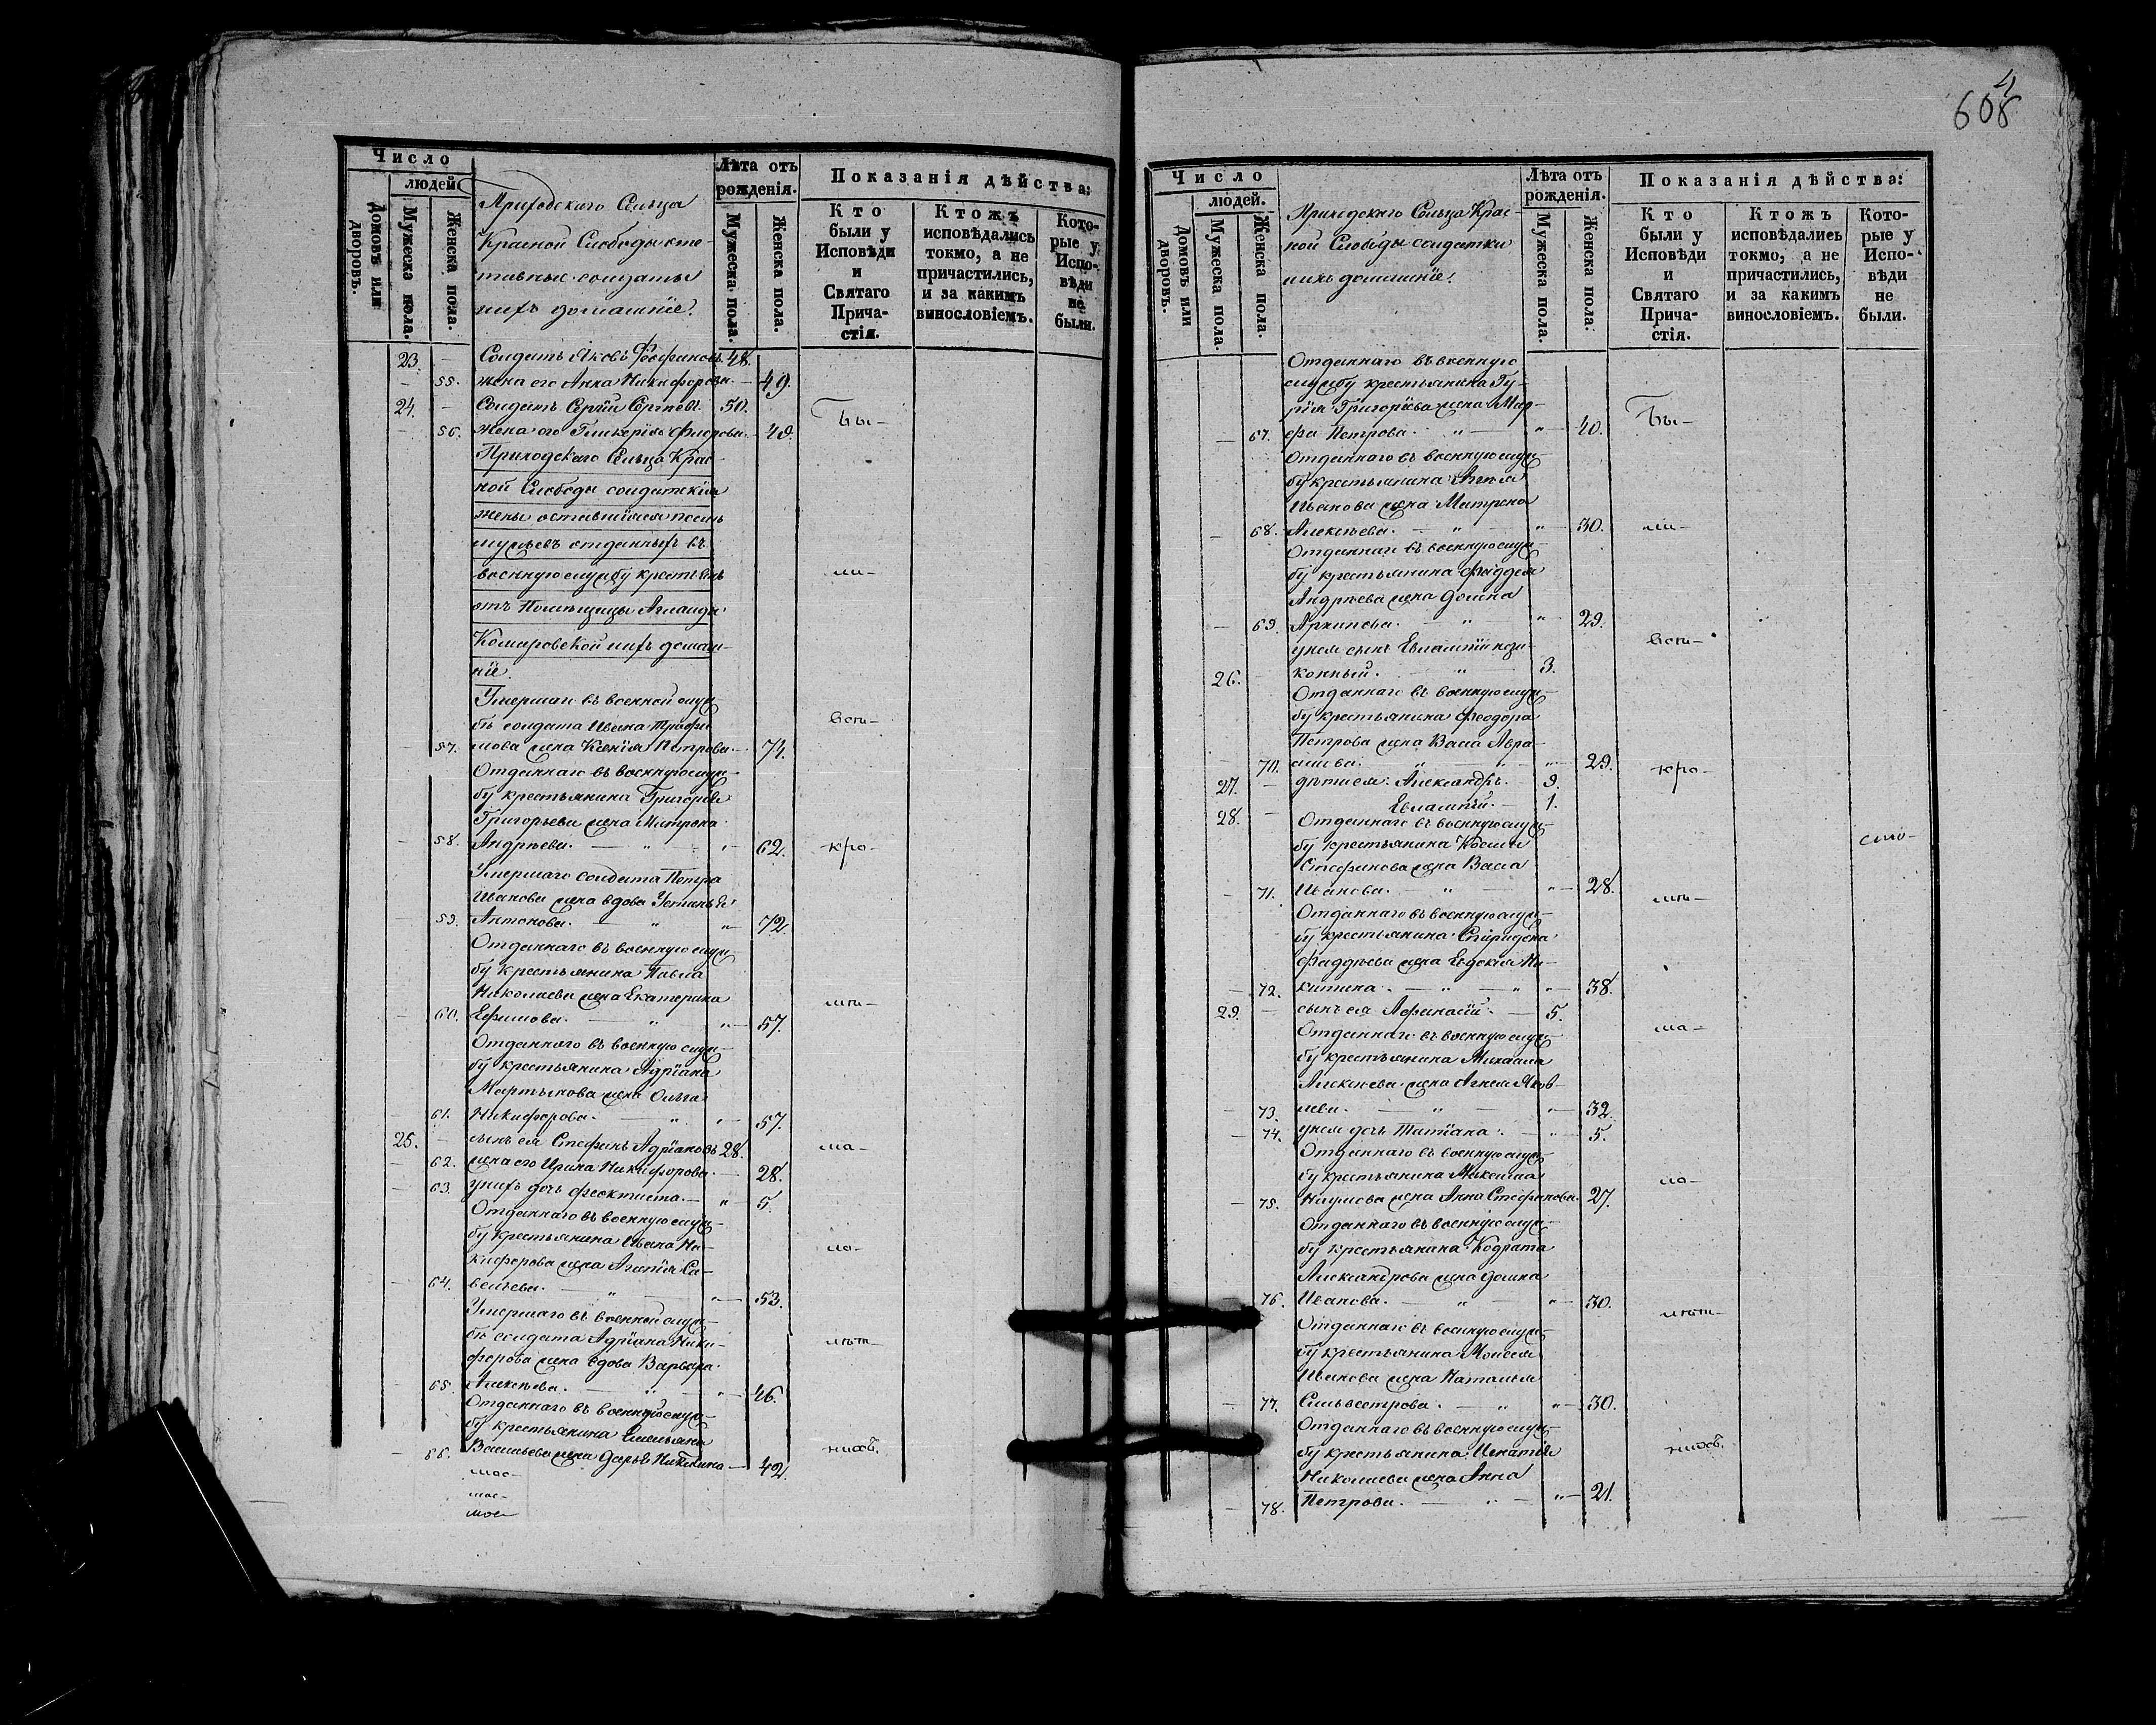 Число
людей
Домовъ или дворовъ.
Мужеска пола.
Женска пола.
Приходскаго Сельца
Красной Слободы отс-
тавные солдаты
ихъ домашніе.
Лѣта отъ рожденія.
Мужеска пола.
Женска пола.
Показанія дѣйства:
Кто были у Исповѣди и Святаго Прича-стія.
Ктожъ исповѣдались токмо, а не причастились, и за какимъ винословіемъ.
Кото-рые у Испо-вѣди не были.
23. — Солдатъ Яковъ 48.
— 55. жена его Анна Никифорова. — 49.
24. — Солдатъ Сергій Сергѣевъ 50.
— 56. жена его Гликерія Флорова. — 49.
Бы-
Приходскаго Сельца Крас-
ной Слободы солдатскія
жены оставшіяся послѣ
мужьевъ отданныхъ въ
военную службу крестьянъ
отъ Помѣщицы Аглаиды
Комаровской ихъ домаш-
ніе.
ли-
Умершаго въ военной служ-
бѣ солдата Ивана Трофи-
мова жена Ксенія Петрова. —
— 57. 74.
всѣ-
Отданнаго въ военную служ-
бу крестьянина Григорія
Григорьева жена Матрона
— 58. Андрѣева. — " — 62.
кро-
Умершаго солдата Петра
Иванова жена вдова Устинья
59. Антонова. — " " — 72.
Отданнаго въ военную служ-
бу крестьянина Павла
Николаева жена Екатерина
— 60. Ефимова. — " " — 57.
Отданнаго въ военную служ-
бу крестьянина Адріана
Мартынова жена Ольга
— 61. Никифорова. " " — 57.
25. — сынъ ея Стефанъ Адріановъ 28.
— 62. жена его Ирина Никифорова. — 28.
— 63. у нихъ дочь Феоктиста. — " 5.
ма-
Отданнаго въ военную служ-
бу крестьянина Ивана Ни-
кифорова жена Агапія Са-
— 64. вельева. — " — " — 53.
ло-
Умершаго въ военной служ-
бѣ солдата Адріана Ники-
форова жена вдова Варвара
— 65. Алексѣева. — " — " — 46.
лѣт-
Отданнаго въ военную служ-
бу крестьянина Емельяна
— 66. Васильева жена Дарья Никитина — 42.
нихъ.
604
Число
людей.
Домовъ или дворовъ.
Мужеска пола.
Женска пола.
Приходскаго Сельца Крас-
ной Слободы солдатки
ихъ домашніе.
Лѣта отъ рожденія.
Мужеска пола.
Женска пола.
Показанія дѣйства:
Кто были у Исповѣди и Святаго Прича-стія.
Ктожъ исповѣдались токмо, а не причастились, и за какимъ винословіемъ.
Кото-рые у Испо-вѣди не были.
Отданнаго въ военную
службу крестьянина Гу-
рія Григорьева жена Мар-
— 67. фа Петрова. " — " — 40.
Бы-
Отданнаго въ военную служ-
бу крестьянина
Иванова жена Матрона
— 68. Алексѣева. — " — " — 30.
ли-
Отданнаго въ военную служ-
бу крестьянина Фаддея
Андрѣева жена Домна
— 69. Архипова. — " — " — 29.
у нея сынъ Евлампій неза-
26. — конный. — " — 3.
всѣ-
Отданнаго въ военную служ-
бу крестьянина Феодора
Петрова жена Васса Авра-
— 70. амова. " — " — 29.
27. — дѣти ея: Александръ. — 9.
28. — Евлампій. — 1.
кро-
Отданнаго въ военную служ-
бу крестьянина Космы
Стефанова жена Васса
— 71. Иванова. — " — " — 28.
Отданнаго въ военную служ-
бу крестьянина Спиридона
Фаддѣева жена Евдокія Ни-
— 72. китина. — " — " " — 38.
29. — сынъ ея Афанасій. — 5.
ма-
Отданнаго въ военную служ-
бу крестьянина Михаила
Алексѣева жена Агнія Яков-
— 73. лева. — " — " — 32.
— 74. у нея дочь Татіана. — " — 5.
Отданнаго въ военную служ-
бу крестьянина Максима
— 75. Наумова жена Анна Стефанова. 27.
ло-
Отданнаго въ военную служ-
бу крестьянина Кодрата
Александрова жена Домна
76. Иванова. — " — " — 30.
лѣт-
Отданнаго въ военную служ-
бу крестьянина Моисея
Иванова жена Наталья
— 77. Сильвестрова. — " " — 30.
Отданнаго въ военную служ-
бу крестьянина Игнатія
Николаева жена Анна
— 78. Петрова. — " — " — 21.
нихъ.